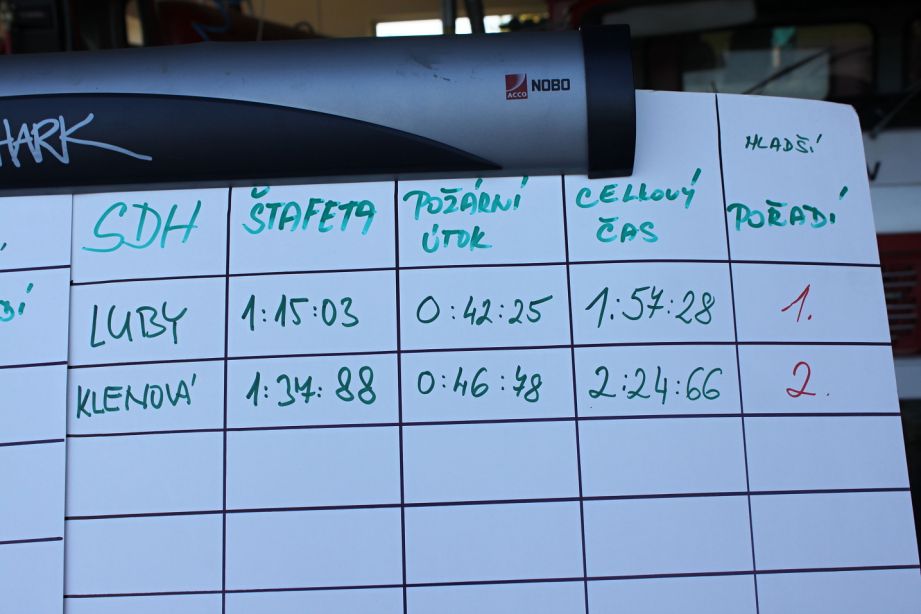 ACCO NOBO
HARK
HLADŠÍ
SDH ŠTAFETA POŽÁRNÍ ÚTOK CELKOVÝ ČAS POŘADÍ
LUBY 1:15:03 0:42:25 1:57:28 1.
KLENOVÁ 1:37:88 0:46:78 2:24:66 2.